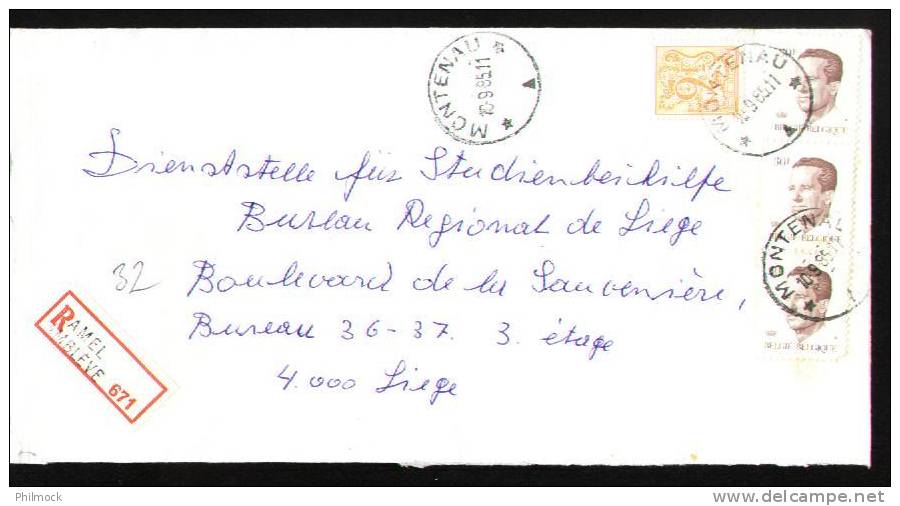 MONTENAU
10-9-85.11
6
MONTENAU
10-9-85.11
BELGIE BELGIQUE
30F
MONTENAU
10-9-85
BELGIE BELGIQUE
BELGIE BELGIQUE
Dienststelle für Studienbeihilfe
Bureau Regional de Liege
32
Boulevard de la Sauvenière,
Bureau 36-37. 3. étage
4.000 Liege
R
AMEL
AMBLEVE 671
Philmock
www.delcampe.net